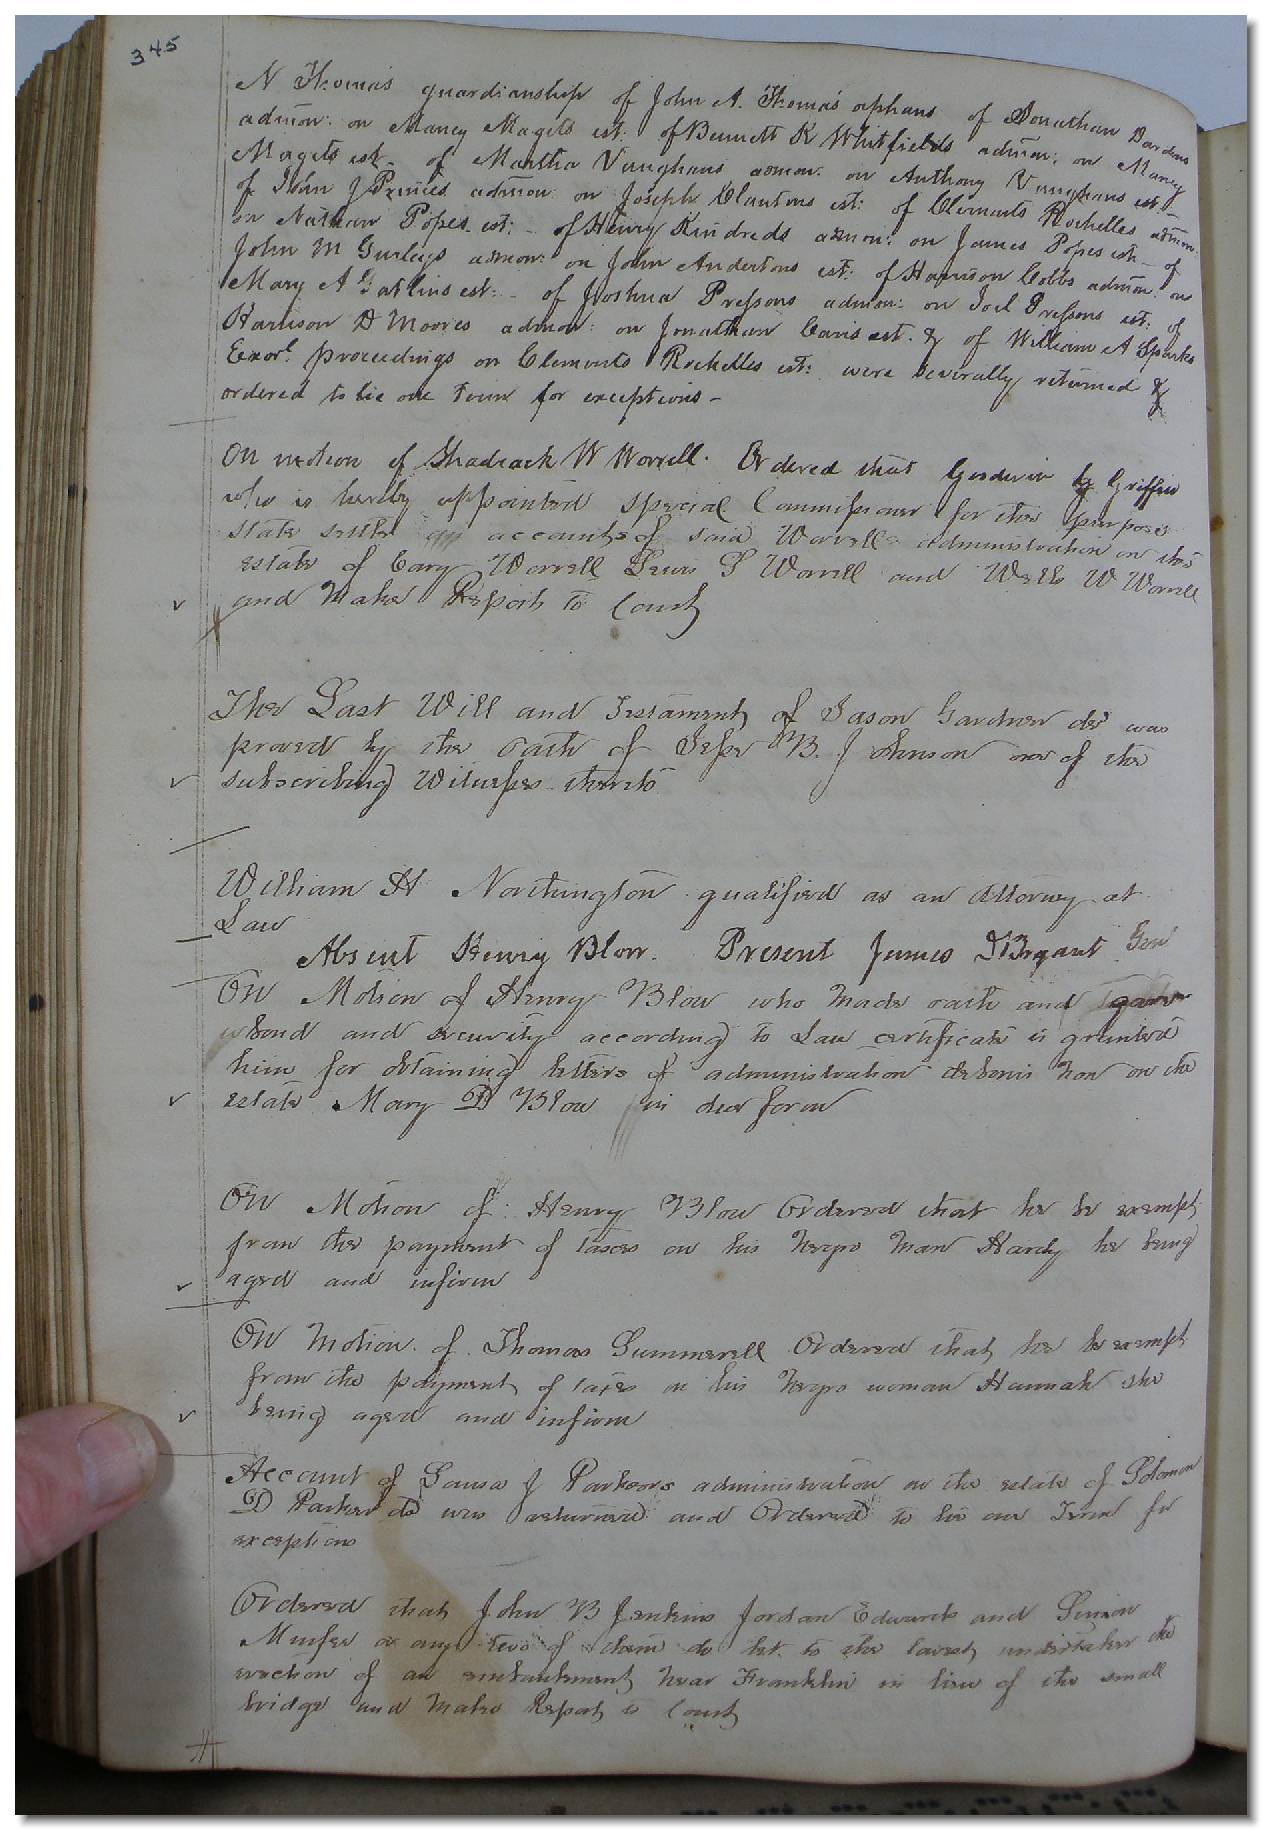 345
N Thomas guardianship of John A. Thomas orphans of Jonathan Dardens
admon: on Mancy Magets est: of Bennett K Whitfields admon: on Mancy
Magets est. of Martha Vaughans admon: on Anthony Vaughans est.
of John J Princes admon: on Joseph Clantons est: of Clements Rochelles admon
on Nathan Popes est: of Henry Kindreds admon: on James Popes est. of
John M Gurleys admon: on John Andertons est: of Harrison Cobbs admon: on
Mary A Gatlins est: of Joshua Pressons admon: on Joel Pressons est: of
Harrison D Moores admon: on Jonathan est. & of William A Sparks
Exor. proceedings on Clements Rochelles est: were severally returned &
ordered to lie one Term for exceptions
On motion of Shadrack W Worrell. Ordered that Goodwin Griffin
who is hereby appointed special Commissioner for the purpose
state settle an accounts of said Worrells administration on the
estate of Cary Worrell Lewis S Worrell and W Worrell
and make Report to Court
The Last Will and Testament of Jason Gardner decd was
proved by the oath of Jesse B. Johnson one of the
subscribing Witnesses thereto
William H Northington qualified as an attorney at
Law
Absent Henry Blow. Present James D Bryant Gen
On Motion of Henry Blow who made oath and gave
bond and security according to Law certificate is granted
him for obtaining letters of administration debonis non on the
estate Mary D Blow in due form
On Motion of Henry Blow Ordered that he be exempt
from the payment of taxes on his negro man Hardy he being
aged and infirm
On Motion of Thomas Summerell Ordered that he be exempt
from the payment of taxes on his negro woman Hannah she
being aged and infirm
Account of Louisa J Parkers administration on the estate of Solomon
D Parker decd was returned and Ordered to lie one Term for
exceptions
Ordered that John B Jenkins Jordan Edwards and Simon
Murfee or any two of them do let to the lowest undertaker the
erection of an embankment near Franklin in lieu of the small
bridge and make Report to Court